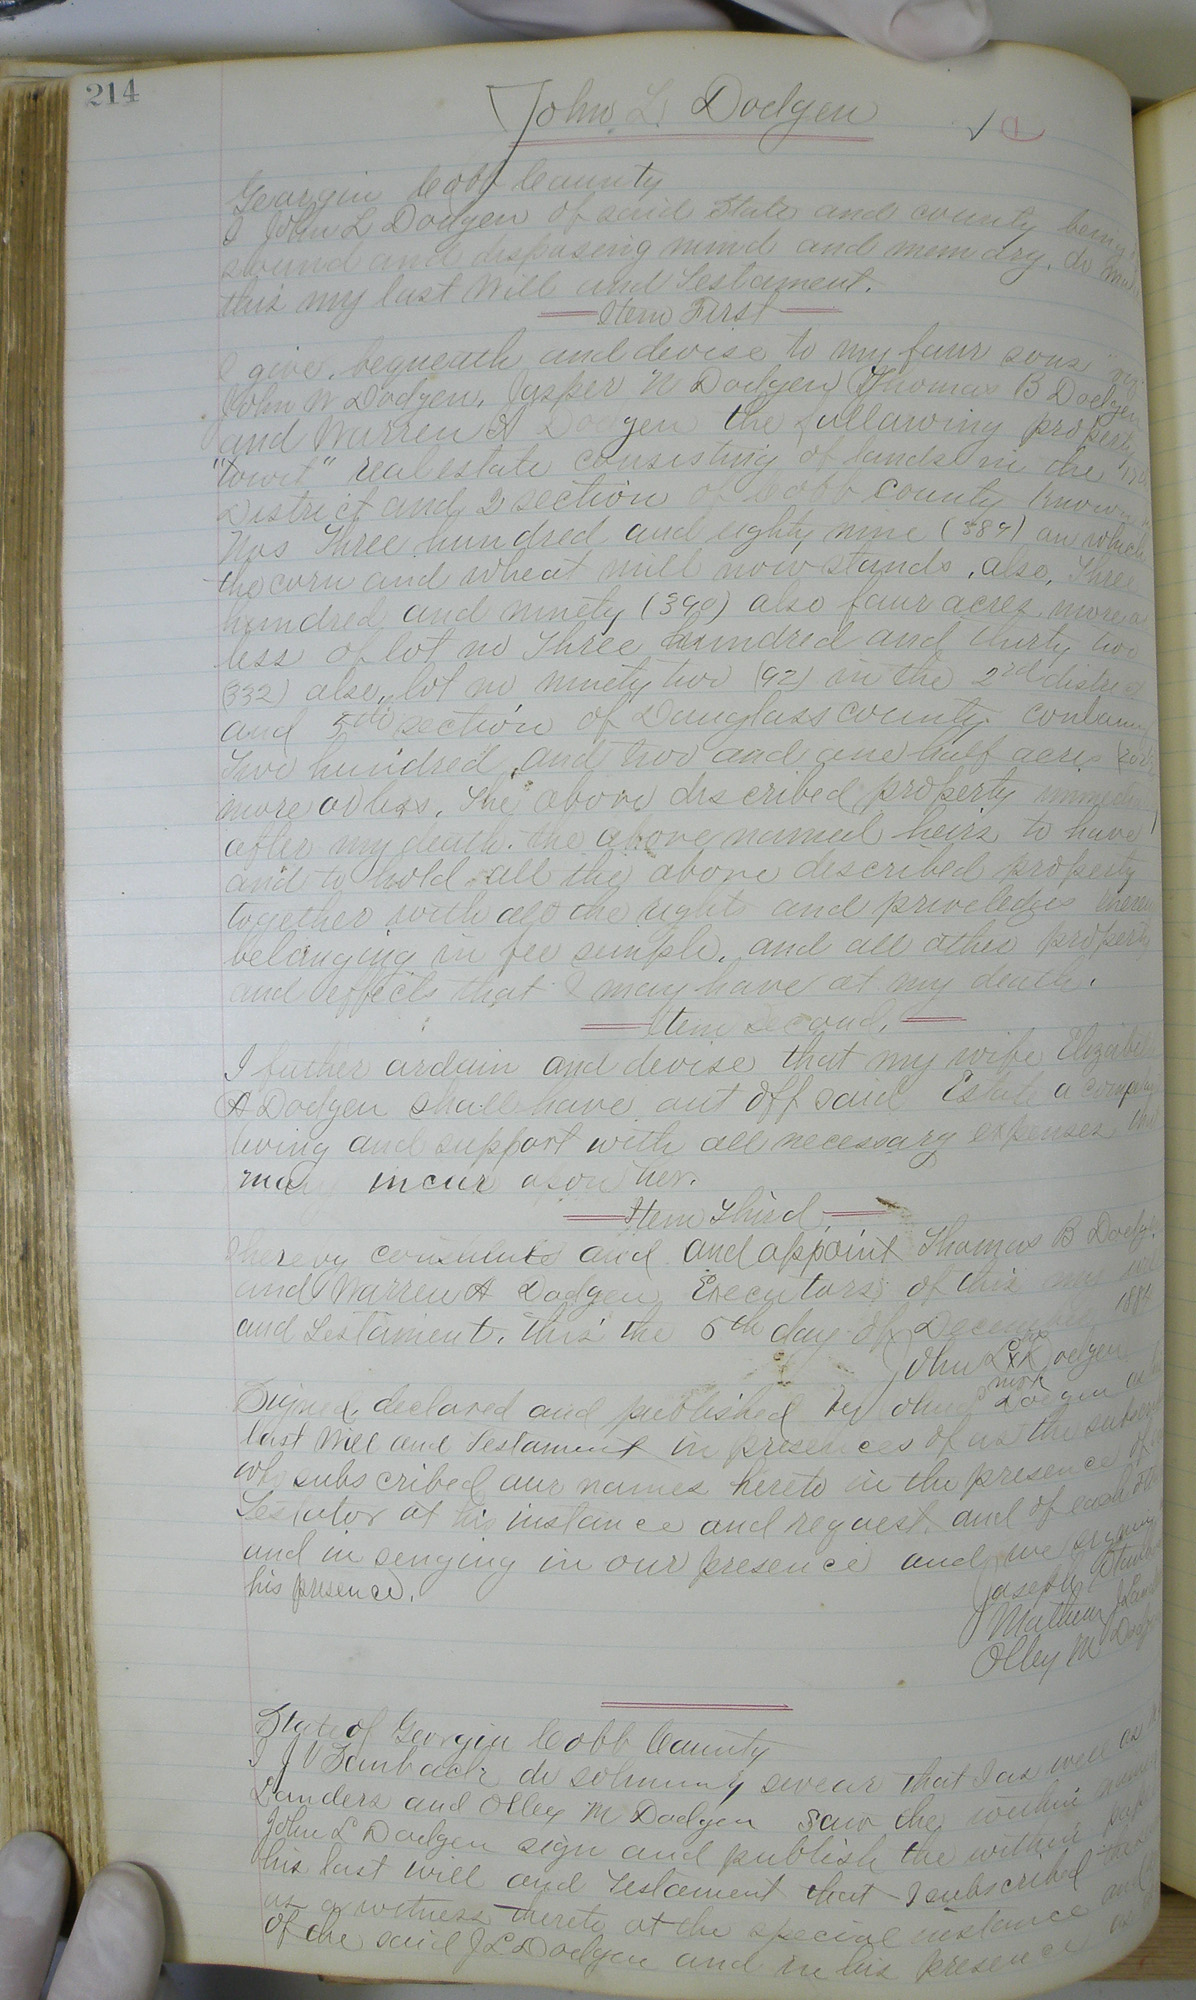 214
John L. Dodgen
Georgia Cobb County
I John L Dodgen of said State and county being
sound and disposing mind and memory, do make
this my last Will and Testament.
Item First
I give, bequeath and devise to my four sons
John W Dodgen, Jasper N Dodgen, Thomas B Dodgen
and Warren A Dodgen the following property
"towit" real estate consisting of lands in the
District and 2 section of Cobb County Known
Nos Three hundred and eighty nine (389) on which
the corn and wheat mill now stands, also, Three
hundred and ninety (390) also four acres more or
less of lot no Three hundred and thirty two
(332) also, lot no ninety two (92) in the 2nd district
and 5th section of Douglass county
Two hundred, and two and one half acres
more or less. The above described property
after my death. the above named heirs to have
and to hold all the above described property
together with all the rights and priveledges
belonging in fee simple, and all other property
and effects that I may have at my death.
Item Second.
I futher ordain and devise that my wife Elizabeth
A Dodgen shall have out off said Estate a
living and support with all necessary expenses
may incur upon her.
Item Third.
I hereby constitute and and appoint Thomas B Dodgen
and Warren A Dodgen Executors of this my
and Testament. this the 5th day of December
John L X Dodgen
mark
Signed, declared and published by John Dodgen as
last Will and Testament in presences of us the
who subscribed our names hereto in the presence of
Testator at his instance and request, and of each
and in senging in our presence and we
his presence.
Joseph
Mathew J
Olley M
State of Georgia Cobb County
I J V do solmnny swear that I as well as
Landers and Olley M Dodgen saw the within
John L Dodgen sign and publish the within
his last will and Testament that I subscribed
as a witness thereto at the special instance and
of the said J L Dodgen and in his presence